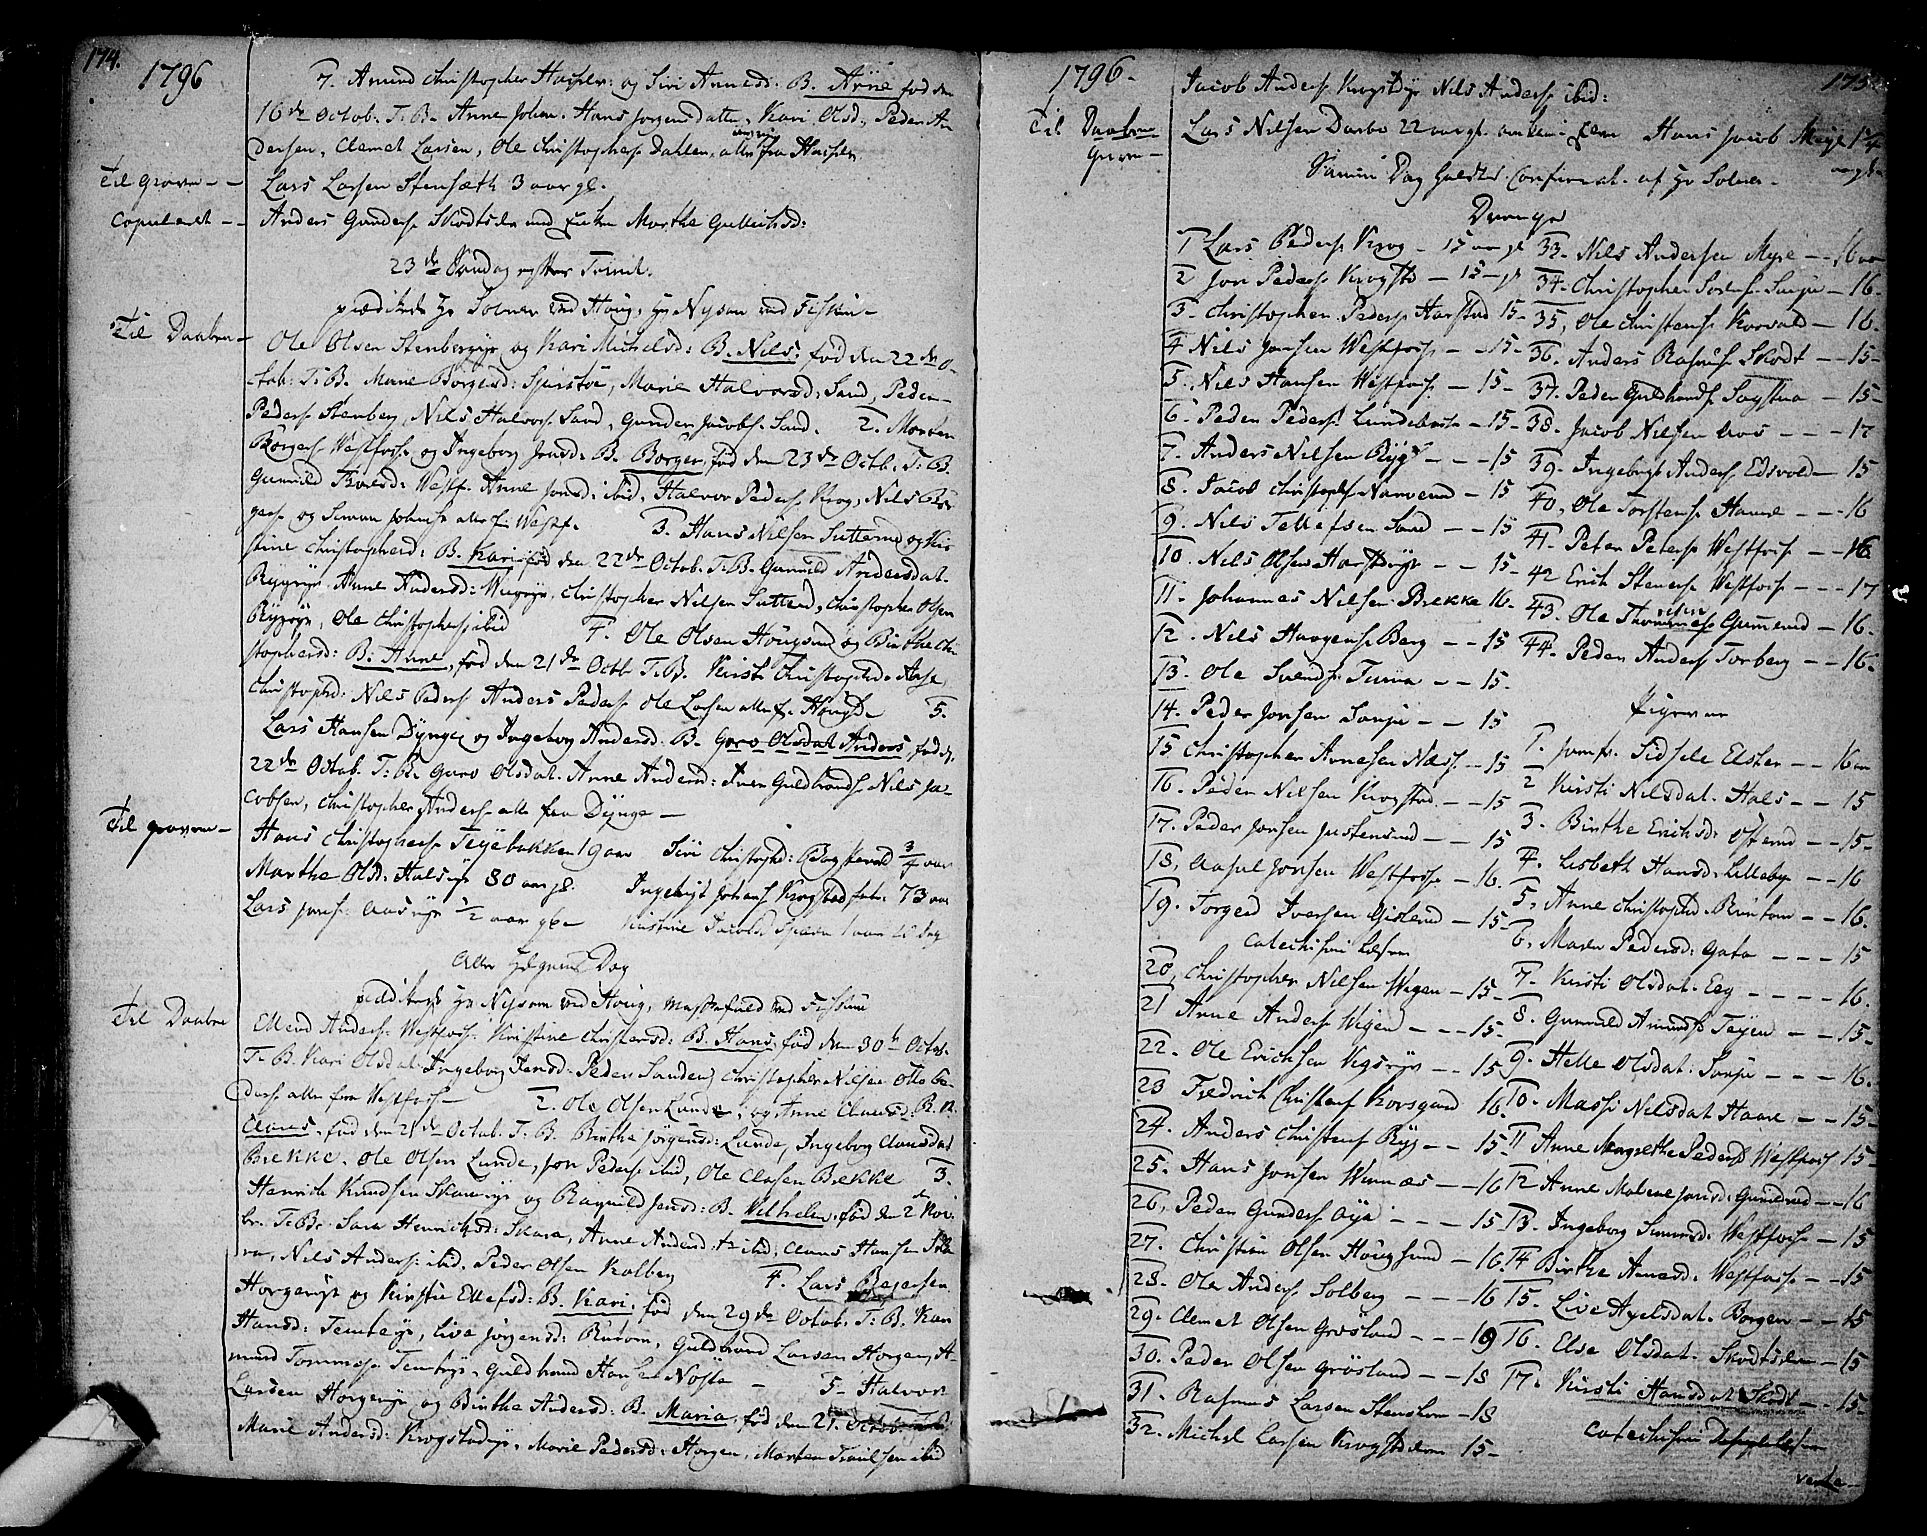 174.
1796
7. Amund Christopher Hoghler: og Siri Arnesd: B. Arne fød den
16de Octob. T. B. Anne Johan. Hans Jørgensdatter, Kari Olsd, Peder An
dersen, Clemet Larsen, Ole Christophers Dahlen, alle fra
Til Graven - - Lars Larsen Stensæth 3 aar gl.
Copuleret - - Anders Gunders Skodtsden med Enken Marthe Gulbichsd:
23de Søndag efter Trinit.
prædikede Hr Solner ved Houg, Hr Nysom ved Fiskum -
Til Daaben - Ole Olsen Stenbergeje og Kari Michelsd: B. Nils, fød den 22de O-
ctob: T. B. Marie Borgersd: Spirstøe, Marie Halvorsd, Sand, Peder
Peders Stenberg, Nils Halvors Sand, Gunder Jacobs Sand. 2. Morten
Borgers Westfoss og Ingeborg Jensd: B. Borger, fød den 23de Octb. T. B.
Gunnild Westf. Anne Jonsd: ibid, Halvor Peders Krog, Nils Bør
gers og Simon Johans alle f. Westf. 3. Hans Nilsen Sutterud og Kir
stine Christopherd: B. Kari fød den 22de Octob. T. B. Gunnild Andersdat.
Rygeje, Anne Andersd: Christopher Nilsen Sutterud, Christopher Olsen
Rygeje, Ole Christophers ibid 4. Ole Olsen Hougsund og Birthe Chri
stophersd: B. Anne, fød den 21de Octb. T. B. Kirsti Christophd. Aase
Christophd: Nils Peders Anders Peders Ole Larsen alle f. Hougs. 5.
Lars Hansen Dynge og Ingeborg Andersd. B. Goro Olsdat Anders, fød d.
22de Octob. T. B. Guro Olsdat. Anne Andersd: Iver Guldbrands Nils Ja-
cobsen, Christopher Anders alle fra Dynge -
Til graven - Hans Christophers Teyebakken 19 aar Siri Christophd: 3/4 aar
Marthe Olsd: Halseje 80 aar gl. Ingebrigt Johans Krogstad 73 aar
Lars Jonss: Aaseje 1/2 aar gl - Kirstine Jacobsd 1 aar
Alle Helgens Dag
prædikede Hr Nysom ved Houg, Messefald ved Fiskum
Til Daaben Ellend Anders Westfoss. Kirstine Christensd: B. Hans, fød den 30te Octob.
T. B. Kari Olsdat. Ingeborg Jensd. Peder Sanden, Christopher Nilsen Otto Pe-
ders alle fra Westfoss - 2. Ole Olsen Lunde, og Anne Clausd. B.
Claus, fød den 21de Octob. T. B. Birthe Jørgensd: Lunde, Ingeborg Clausdat
Brekke. Ole Olsen Lunde, Jon Peders ibid, Ole Clasen Brekke 3.
Henrich Knudsen Skareje og Ragnild Jensd: B. Vilhelm, fød den 2 Nov
br. T. B. Sara Henrichsd. Skara, Anne Andersd: ibid, Claus Hansen Ska
ra, Nils Anders: ibid, Peder Olsen Kolberg 4. Lars
Horgeneje og Kirstie Ellefsd: B. Kari, fød den 29de Octob. T. B. Kari
Hansd: Temteje, Live Jørgensd: Rudom, Guldbrand Larsen Horgen, A-
mund Tommes Temteje, Guldbrand Hans Nøsta - 5. Halvor
Larsen Horgeneje og Birthe Andersd: B. Maria, fød den 21. Octob.
Marie Andersd: Krogstadeje, Marie Pedersd: Horgen, Morten Troulsen ibid
1796 -
175
Jacob Anders Krogsteje Nils Anders ibid:
Til Daaben Graven - Lars Nilsen Darbo 22 aar gl. Hans Jacob 14 aar gl.
Samme Dag holdtes Confirmat. af Hr Solner -
Drenge
1 Lars Peders Krog - 15 aar gl
2 Jon Peders Krogstd - 15 - gl
3. Christopher Peders Harstad 15 -
4 Nils Jonsen Westfoss - - 15 -
5. Nils Hansen Westfoss - 15 -
6. Peder Peders Lundebaste - 15 -
7. Anders Nilsen Ryg - - - 15
8. Jacob Christophs Narverud - 15
9. Nils Tellefsen Sand - - 15
10. Nils Olsen Harsteje - - 15 -
11. Johannes Nilsen Brekke 16 -
12. Nils Haagens Berg - - 15
13. Ole Svends Turva - - 15.
14. Peder Jonsen Sonju - - 15
15 Christopher Arnesen Næss - - 15
16. Peder Nilsen Krogstad - - 15
17. Peder Jonsen Justensrud - - 15
18. Aaful Jonsen Westfoss - 16.
19. Torger Iversen Gislerud - 15 -
Catechismi Læsere
20, Christopher Nilsen Wegen - 15 -
21 Arne Anders Wegen - - - 15 -
22. Ole Erichsen Vegseje - - 15
23 Fredrich Christens Korsgaard 16.
24. Anders Christens Ryg - - 15
25. Hans Jonsen Winnæs - - 16
26, Peder Gunders Øya - - - 15
27. Christian Olsen Hougsund - 16
28. Ole Anders Solberg - - - 16
29. Clemet Olsen Grøsland - - - 19
30. Peder Olsen Grøsland - - 18
31. Rasmus Larsen Stenshorn - 18
32. Michel Larsen Krogstdem 15 -
33. Nils Andersen Myre - - 16 aar
34. Christopher Sonju - 16 -
35, Ole Christens Korvald - 16.
36. Anders Rasmus Skodt - - 15 -
37. Peder Guldbrands Sagstua - 15 -
38. Jacob Nilsen Aas - - - 17
39. Ingebrigt Anders Edsvold - 15
40, Ole Torstens Hanne - - - 16
41. Peter Peters Westfoss - - 16
42 Erich Steners Westfoss - - - 17
43. Ole Gunnerud - 16.
44. Peder Anders Torberg - - 16 -
Pigerne
1. Jomfr. Sidsele Elster - - 16 aar
2 Kirsti Nilsdat. Hals - - 15
3. Birthe Erichsd: Ofterud - - 15 -
4. Lisbeth Hansd: Lilleby - - 16
5, Anne Christophd. Rudom - - 16.
6, Maren Pedersd: Gata - - - 15
7. Kirsti Olsdat. Eeg - - - - 16.
8. Gunnild Amunds Teyen - - 15 -
9. Helle Olsdat. Sonju - - - 16.
10. Massi Nilsdat Haare - - 15 -
11 Anne Margrethe Peders Westfoss 15 -
12 Anne Malene Jonsd: Gunnerud - - 16
13. Ingeborg Simensd: Westfoss - 15
14 Birthe Arnesd: Westfoss - - 15
15. Live Axelsdat. Borgen - - 15
16. Else Olsdat. Skodtsden - 15
17. Kirsti Hansdat Skodt - - 15 -
Catechismi
verte